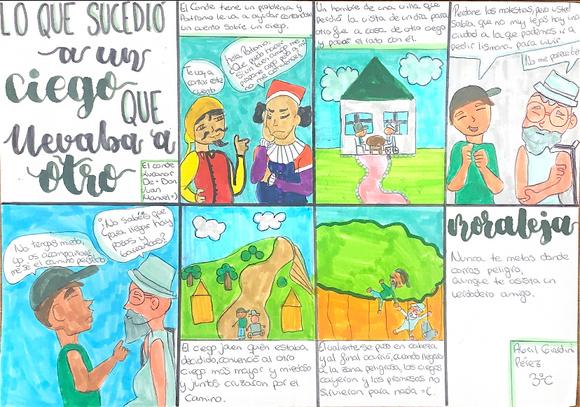 LO QUE SUCEDIÓ
a un
ciego QUE
llevaba a
otro
El conde
Lucanor
De: Don
Juan
Manuel
El Conde tiene un problema y
Patronio le va a ayudar contandole
un cuento sobre un ciego.
Un hombre de una villa que
perdió la vista de un día para
otro fue a casa de otro ciego
y pasar el rato con él.
Perdone las molestias, pero usted
sabía que no muy lejos hay una
ciudad a la que podemos ir a
pedir limosna para vivir
No me parece
No tengas miedo,
yo os acompañaré
el camino
¿No sabéis que
para llegar hay
pasos y
barrancos?
El ciego joven quién estaba
decidido, convenció al otro
ciego más mayor y miedoso
y juntos cruzaron por el
camino.
El valiente se puso en cabeza
y al final ocurrió, cuando llegaron
a la zona peligrosa, los ciegos
cayeron y las promesas no
sirvieron para nada :(.
moraleja
Nunca te metas donde
corras peligro,
aunque te asista un
verdadero amigo.
Abril
Pérez
3ºC